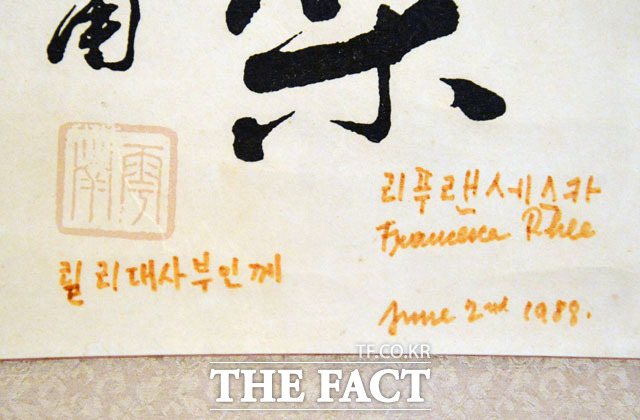 雩南
리푸랜세스카
Francesca Rhee
릴리대사부인께
June 2nd 1988.
TF.CO.KR
THE FACT